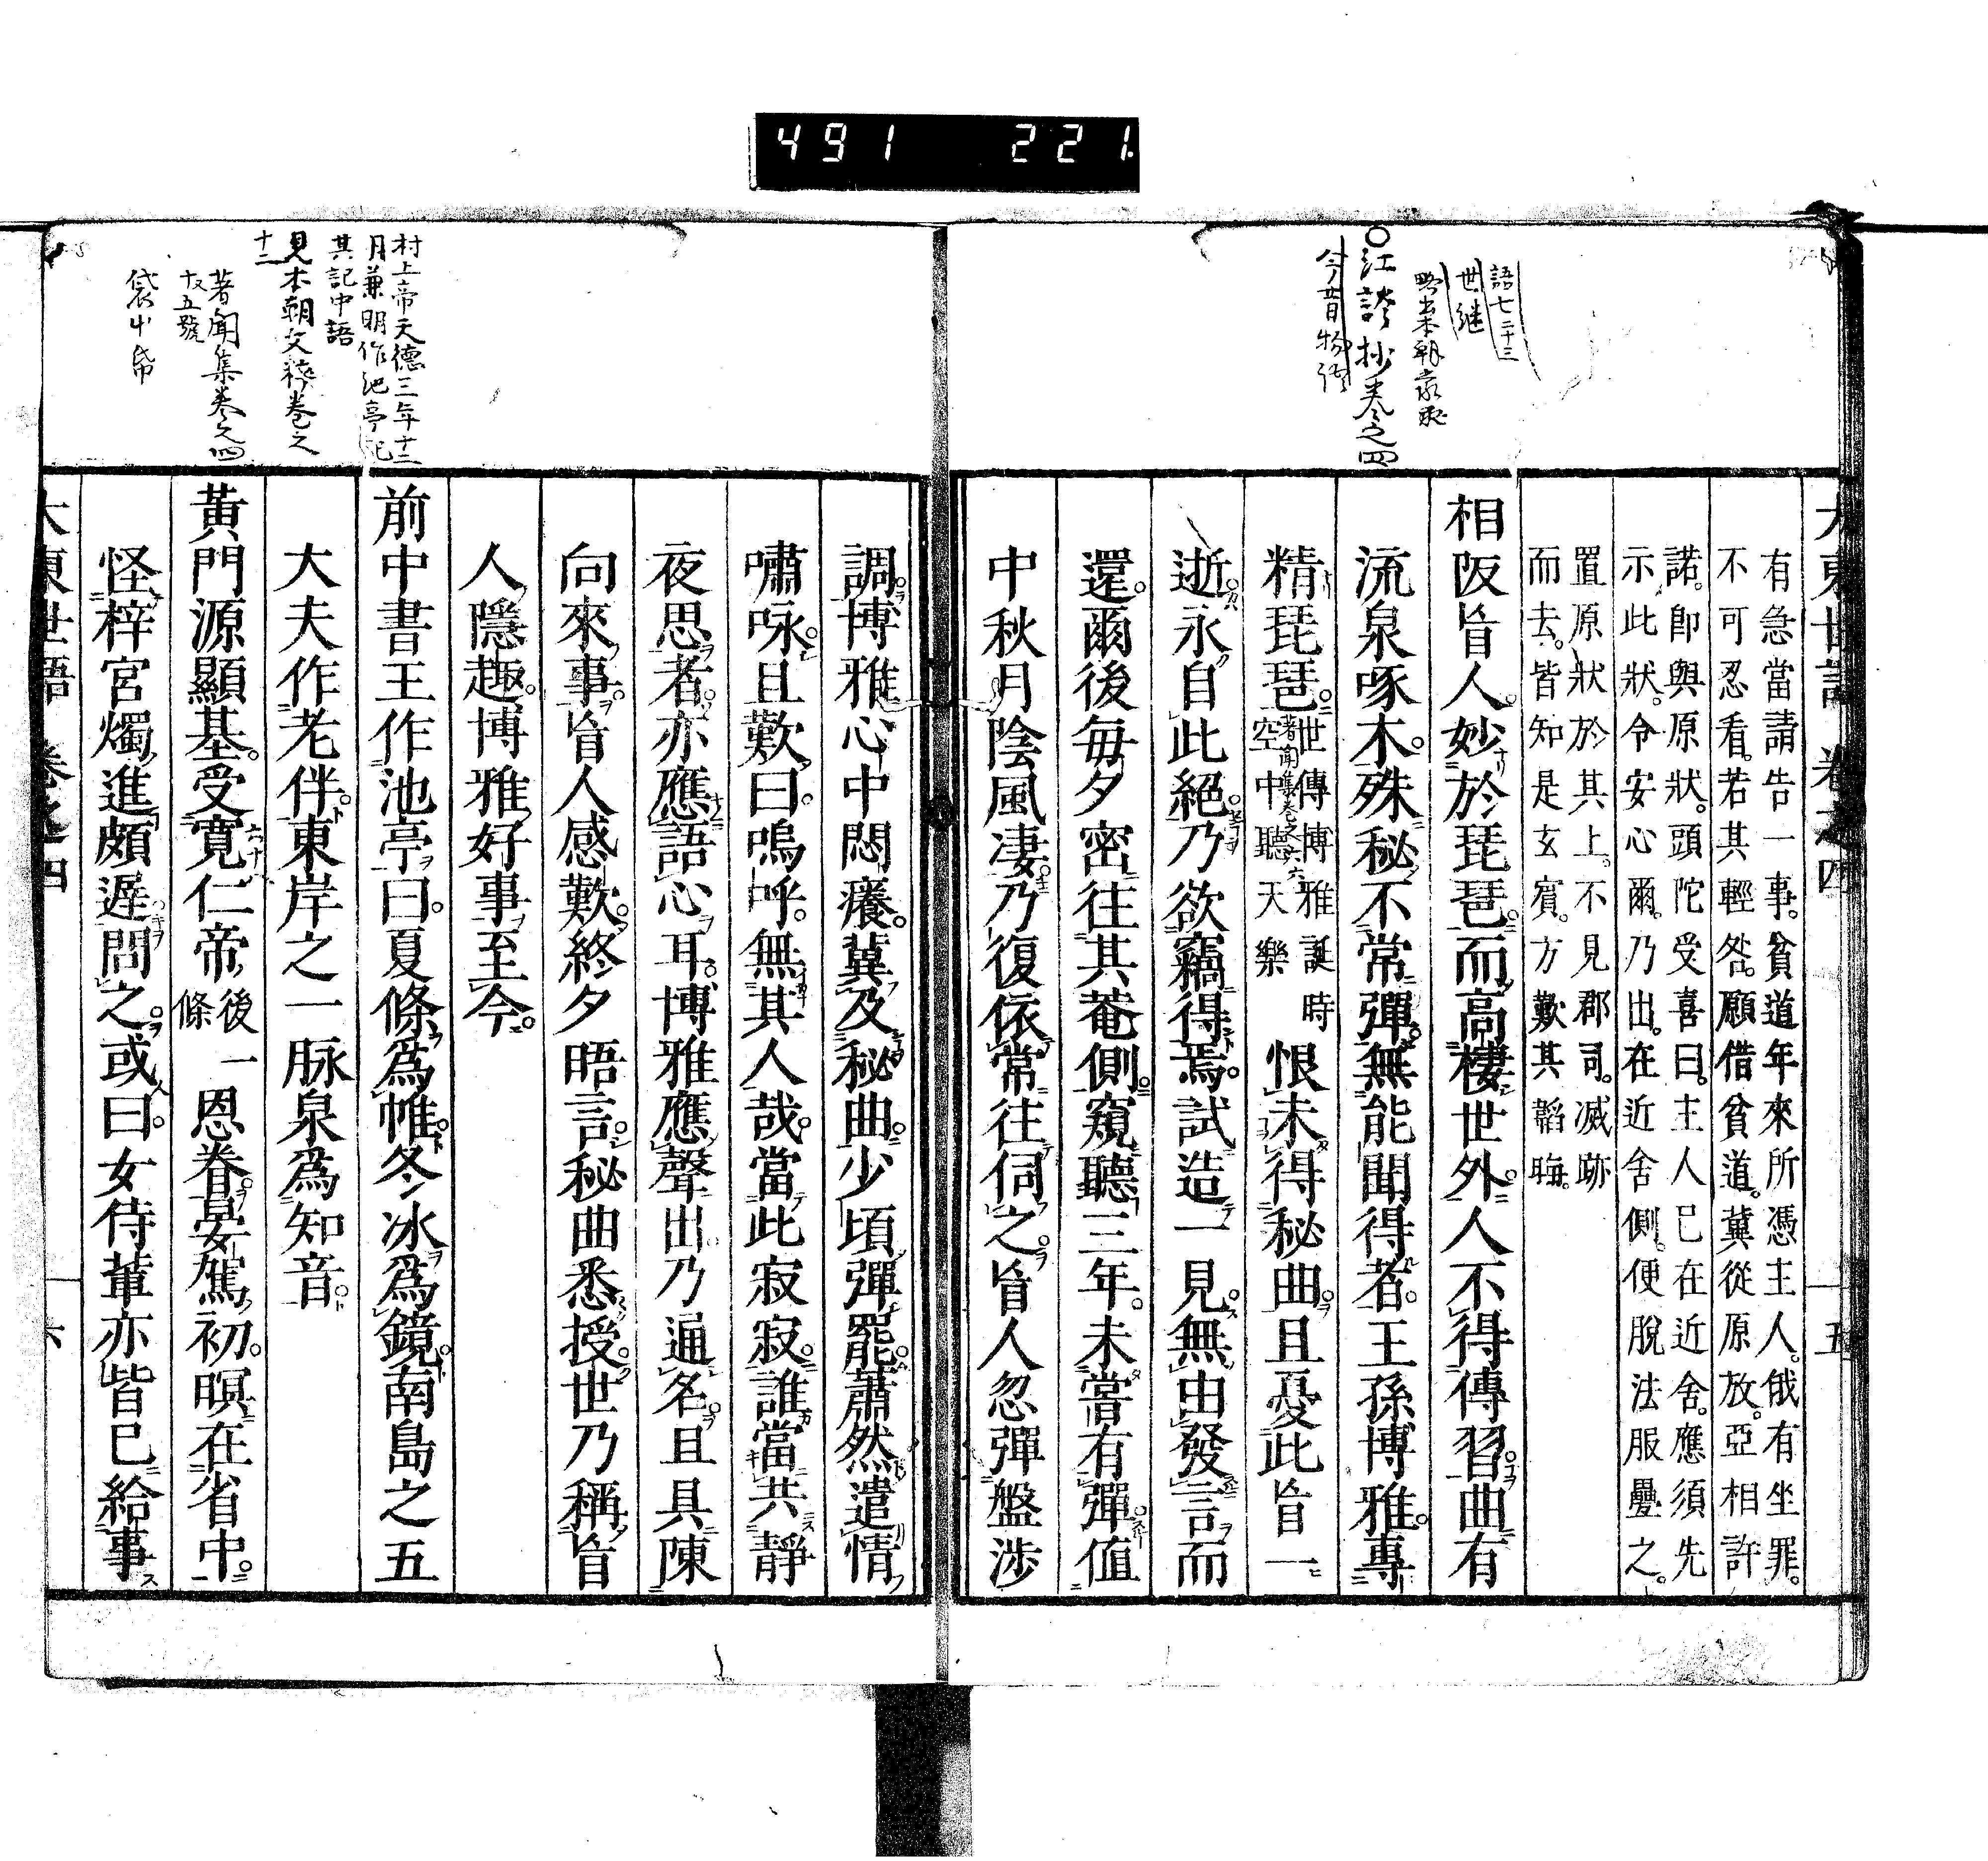 491 221
語七二十三
世継
○江談抄卷之四
今昔物語
大東世語 卷之四 五
有急當請告一事。貧道年來所憑主人。俄有坐罪。
不可忍看。若其輕咎。願借貧道。冀從原放。亞相許
諾。即與原狀。頭陀受喜曰。主人已在近舍。應須先
示此狀。令安心爾。乃出。在近舍側。便脫法服疊之。
置原狀於其上。不見郡司。滅跡
而去。皆知是玄賓。方歎其韜晦。
相阪盲人。妙於琵琶。而高棲世外。人不得傳習。曲有
流泉啄木。殊秘不常彈。無能聞得者。王孫博雅。專
精琵琶。世傳博雅誕時空中聽天樂恨未得秘曲。且憂此盲一
著聞集卷之六
逝永自此絕。乃欲竊得焉。試造一見。無由發言而
還。爾後每夕密往其菴側。窺聽三年。未嘗有彈值
中秋月陰風凄。乃復依常往伺之。盲人忽彈盤涉
調。博雅心中悶癢。冀及秘曲。少頃彈罷。蕭然遣情
嘯咏。且歎曰。嗚呼。無其人哉。當此寂寂。誰當共靜
夜思者。亦應語心耳。博雅應聲出乃通名。且具陳
向來事。盲人感歎。終夕晤言。秘曲悉授。世乃稱盲
人隱趣。博雅好事至今。
前中書王作池亭曰。夏條為帷。冬冰為鏡。南島之五
大夫作老伴。東岸之一脉泉為知音。
黃門源顯基。受寬仁帝後一條恩眷。晏駕初。暝在省中。
怪梓宮燭進頗遲。問之。或曰。女侍輩亦皆已給事
大東世語 卷之四 六
村上帝天德三年十二
月兼明作池亭記
其記中語
見本朝文粹卷之
十二
著聞集卷之四
十五號
袋草帋